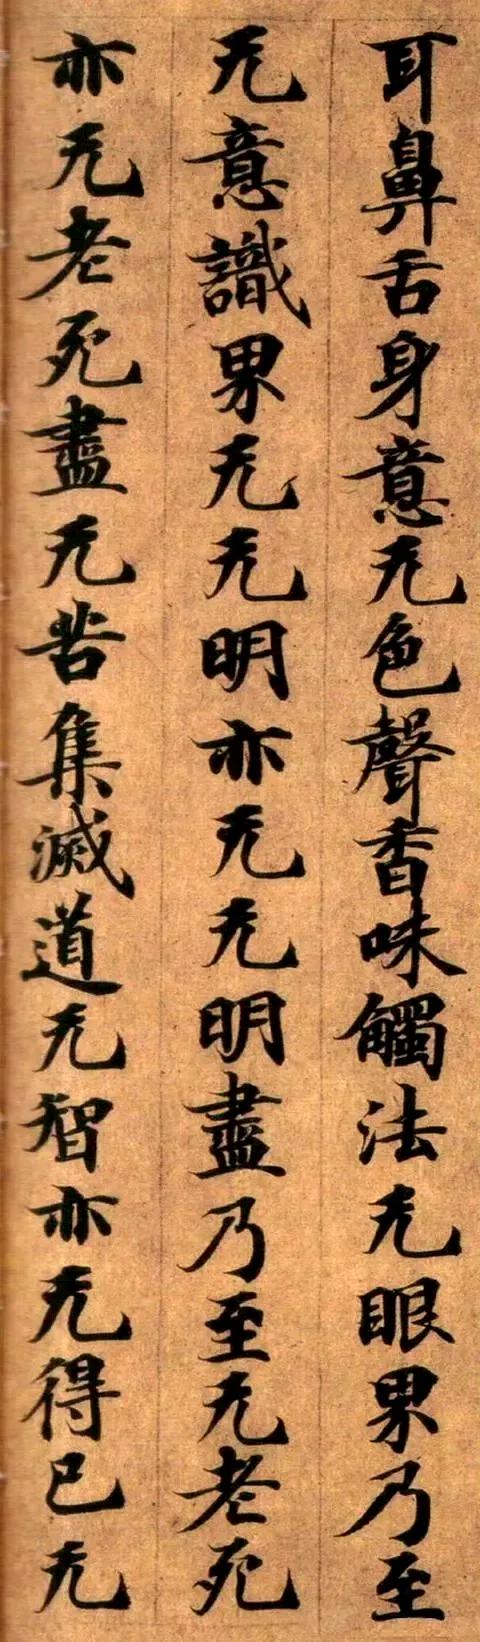 耳鼻舌身意无色聲香味觸法无眼界乃至
无意識界无无明亦无无明盡乃至无老死
亦无老死盡无苦集滅道无智亦无得已无